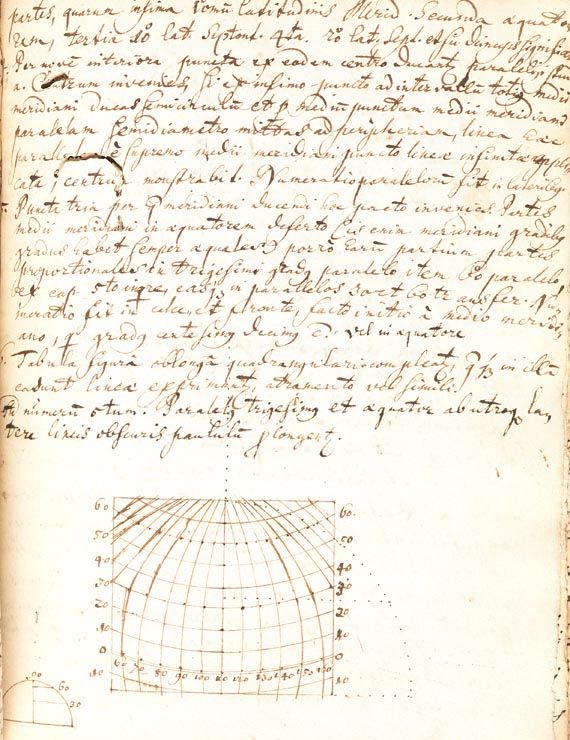 partes, quarum infima 10mu latitudinis Merid. Secunda æquato
rem, tertia 10 lat septent. 4ta. 20 lat. sept. et sic dincups significa
Per novem interiora puncta ex eodem centro ducant paralleli,
a. Centrum invenies, si ex infimo puncto ad intervallum totius medii
meridiani ducas semicirculu et p mediu punctum medii meridiani
paralelam semidiametro mittas ad peripheriam, linea hæc
parallela è supremo medii meridiani puncto lineæ infinitæ
cata, centrum monstrabit. Numeratio paralelorū fit in laterib9
Puncta tria per q meridiani ducendi hoc pacto invenies. Partes
medii meridiani in æquatorem deferto (is enim meridiani gradib9
gradus habet semper æquales) porrò harū partium partes
proportionales in trigesimi grad9 paralelo item 60 paralelo,
ex cap. 5to ingre, easq3 in parallelos 30 et 60 transfer. Nu
meratio fit in calce, et fronte, facto initio à medio meridi
ano, q grad9 centesim9 decim9 ē. vel in æquatore
Tabula figurā oblongā quadrangularis complect, q q3 in illā
cadunt lineæ exprimant, atramento vel simili.
Ad numerū 5tum. Paralel9 trigesim9 et æquator ab utroq3 la
tere lineis obscuris paululū plongent.
60 60
50 50
40 40
30 30
20 20
10 10
0 0
10 10
60 70 80 90 100 110 120 130 140 150 160
90 60
30